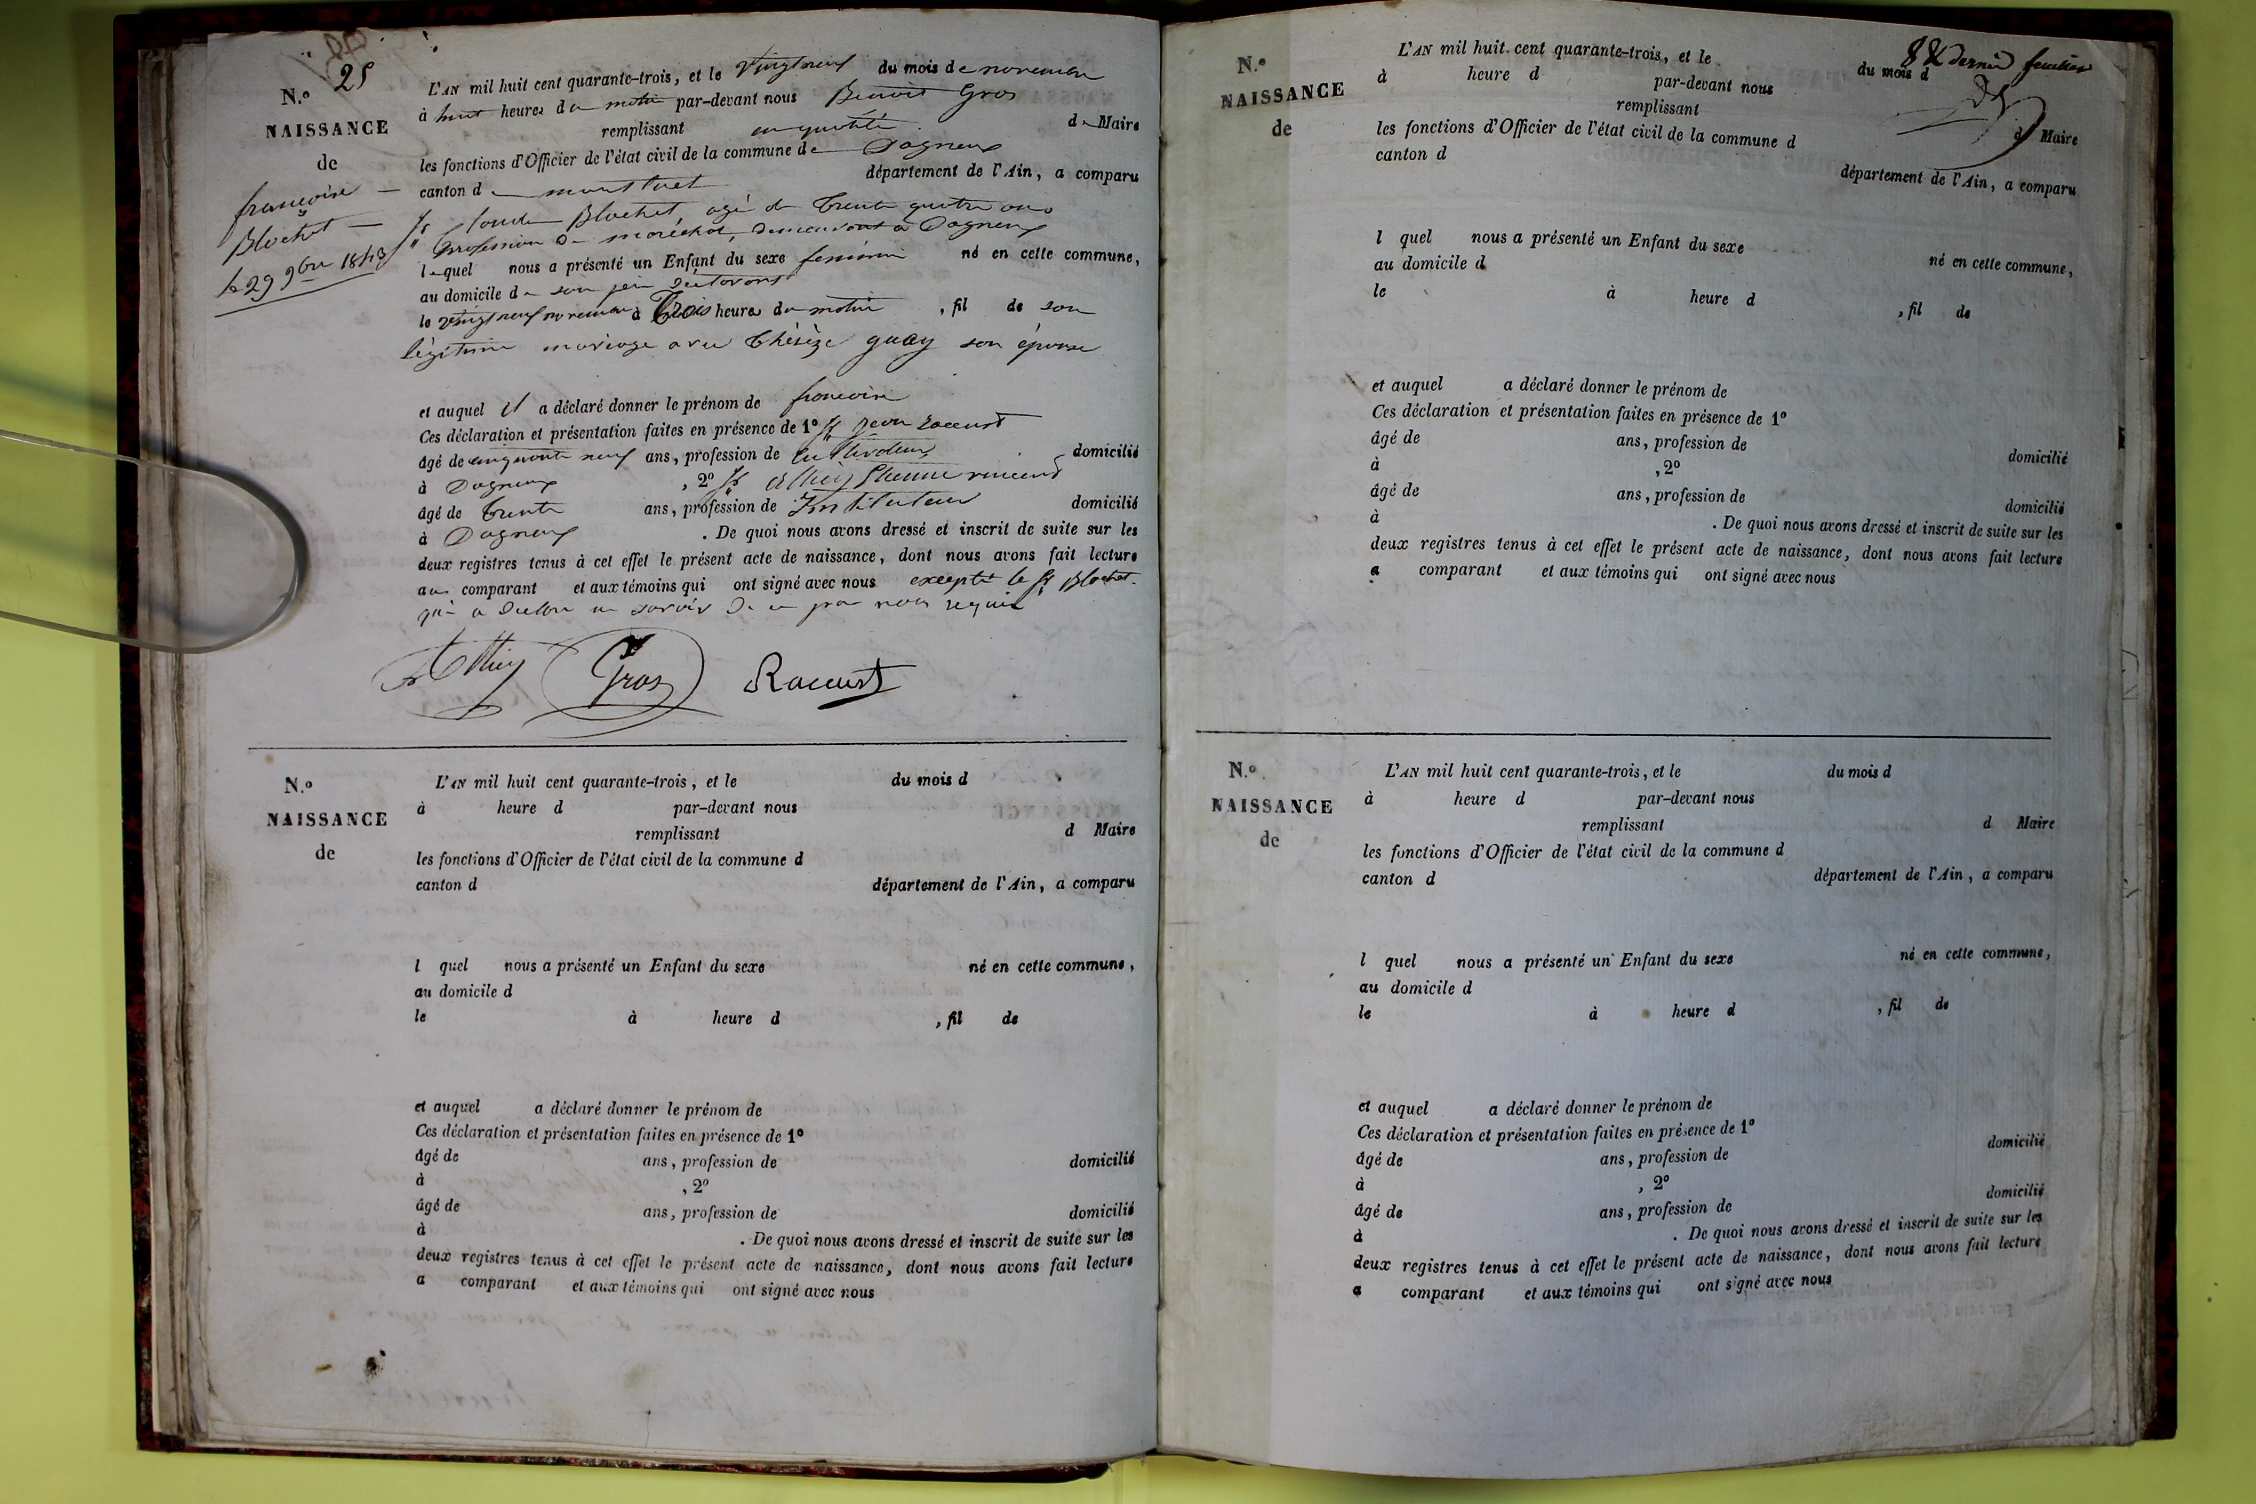 N.o 25
NAISSANCE
de
françoise
Blochet
le 29 9bre 1843
L'AN mil huit cent quarante-trois, et le vingt neuf du mois de novembre
à huit heures du matin par-devant nous Benoit Gros
remplissant en qualité de Maire
les fonctions d'Officier de l'état civil de la commune de Dagneux
canton de montluel département de l'Ain, a comparu
Sr Blochet, agé de trente quatre ans
profession de maréchal, demeurant à Dagneux
lequel nous a présenté un Enfant du sexe feminin né en cette commune,
au domicile de son père déclarant
le vingt neuf novembre à Trois heures du matin, fil de son
légitime mariage avec thérèze guay son épouse
et auquel il a déclaré donner le prénom de francoise
Ces déclaration et présentation faites en présence de 1º Sr jean Racurt
âgé de cinquante neuf ans, profession de cultivateur domicilié
à Dagneux, 2º Sr Etienne vincent
âgé de trente ans, profession de Instituteur domicilié
à Dagneux. De quoi nous avons dressé et inscrit de suite sur les
deux registres tenus à cet effet le présent acte de naissance, dont nous avons fait lecture
au comparant et aux témoins qui ont signé avec nous excepté le Sr Blochet
qui a déclaré ne savoir de ce par nous requis
Gros Racurt
N.o
NAISSANCE
de
L'AN mil huit cent quarante-trois, et le du mois d
à heure d par-devant nous
remplissant d Maire
les fonctions d'Officier de l'état civil de la commune d
canton d département de l'Ain, a comparu
l quel nous a présenté un Enfant du sexe né en cette commune,
au domicile d
le à heure d , fil de
et auquel a déclaré donner le prénom de
Ces déclaration et présentation faites en présence de 1º
âgé de ans, profession de domicilié
à , 2º
âgé de ans, profession de domicilié
à . De quoi nous avons dressé et inscrit de suite sur les
deux registres tenus à cet effet le présent acte de naissance, dont nous avons fait lecture
a comparant et aux témoins qui ont signé avec nous
N.o
NAISSANCE
de
8 & dernier feuillet
L'AN mil huit cent quarante-trois, et le du mois d
à heure d par-devant nous
remplissant d Maire
les fonctions d'Officier de l'état civil de la commune d
canton d département de l'Ain, a comparu
l quel nous a présenté un Enfant du sexe né en cette commune,
au domicile d
le à heure d , fil de
et auquel a déclaré donner le prénom de
Ces déclaration et présentation faites en présence de 1º
âgé de ans, profession de domicilié
à , 2º
âgé de ans, profession de domicilié
à . De quoi nous avons dressé et inscrit de suite sur les
deux registres tenus à cet effet le présent acte de naissance, dont nous avons fait lecture
a comparant et aux témoins qui ont signé avec nous
N.o
NAISSANCE
de
L'AN mil huit cent quarante-trois, et le du mois d
à heure d par-devant nous
remplissant d Maire
les fonctions d'Officier de l'état civil de la commune d
canton d département de l'Ain, a comparu
l quel nous a présenté un Enfant du sexe né en cette commune,
au domicile d
le à heure d , fil de
et auquel a déclaré donner le prénom de
Ces déclaration et présentation faites en présence de 1º
âgé de ans, profession de domicilié
à , 2º
âgé de ans, profession de domicilié
à . De quoi nous avons dressé et inscrit de suite sur les
deux registres tenus à cet effet le présent acte de naissance, dont nous avons fait lecture
a comparant et aux témoins qui ont signé avec nous